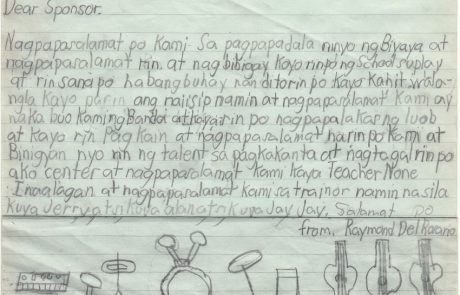 Dear Sponsor.
Nagpapasalamat po Kami Sa pagpapadala ninyo ng Biyaya at
nagpapasalamat rin. at nagbibigay Kayo rin po ng School suplay
at rin sana po habang buhay nan ditorin po Kayo Kahit wala-
ngla Kayo parin ang naiisip namin at nagpapasalamat Kami ay
naka buo Kaming Banda at kayo rin po nagpapalakas ng luob
at Kayo rin Pag Kain at nagpapasalamat na rin po Kami at
Binigyan nyo ng talent sa pagkakanta at nagtagal rin po
ako center at nagpapasalamat Kami Kaya Teacher None
Inaalagan at nagpapasalamat Kami sa trainor namin na sila
Kuya Jerry at si Kuya at si Kuya Jay Jay. Salamat po
from. Raymond Del